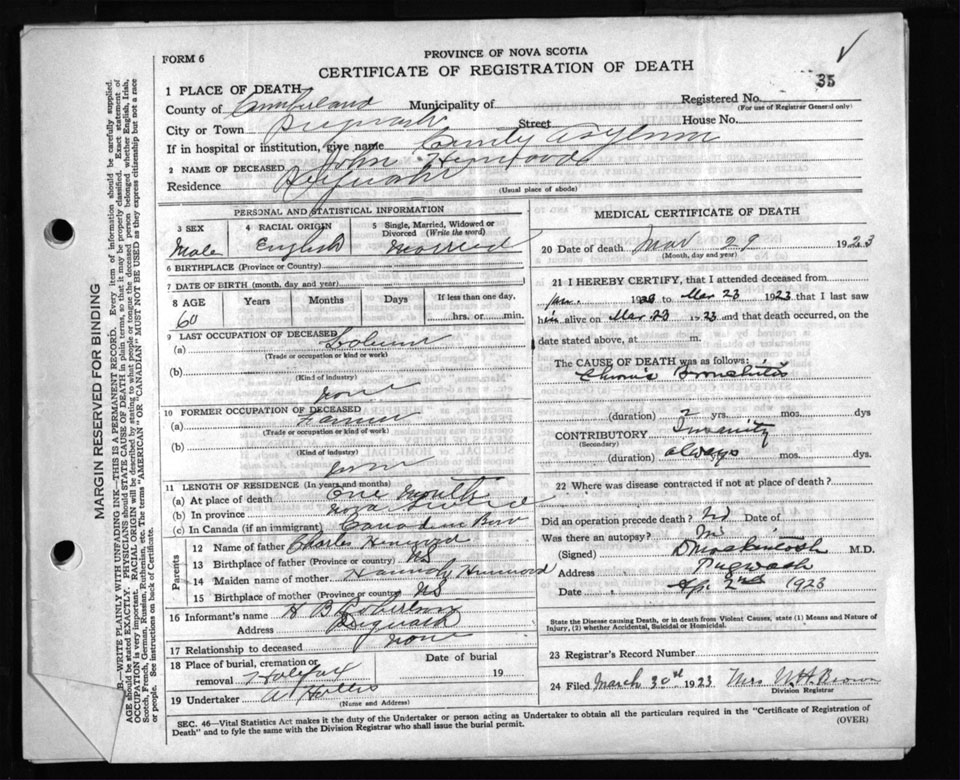 FORM 6
PROVINCE OF NOVA SCOTIA
CERTIFICATE OF REGISTRATION OF DEATH
35
1 PLACE OF DEATH
County of Cumberland Municipality of Registered No.
(For use of Registrar General only)
City or Town Pugwash Street House No.
If in hospital or institution, give name County Asylum
2 NAME OF DECEASED John Henwood
Residence Pugwash
(Usual place of abode)
PERSONAL AND STATISTICAL INFORMATION
3 SEX 4 RACIAL ORIGIN 5 Single, Married, Widowed or Divorced (Write the word)
Male English Married
6 BIRTHPLACE (Province or Country)
7 DATE OF BIRTH (month, day and year)
8 AGE Years Months Days If less than one day,
60 hrs. or min.
9 LAST OCCUPATION OF DECEASED
(a)
(Trade or occupation or kind or work)
(b)
(Kind of industry)
none
10 FORMER OCCUPATION OF DECEASED
(a) Farmer
(Trade or occupation or kind of work)
(b)
(Kind of industry)
11 LENGTH OF RESIDENCE (In years and months)
(a) At place of death One month
(b) In province Nova Scotia
(c) In Canada (if an immigrant) Canadian Born
Parents
12 Name of father Charles
13 Birthplace of father (Province or country) NS
14 Maiden name of mother Hannah
15 Birthplace of mother (Province or country) NS
16 Informant's name H B
Address Pugwash
17 Relationship to deceased none
18 Place of burial, cremation or removal Halifax Date of burial 19
19 Undertaker A Hollis
(Name and Address)
MEDICAL CERTIFICATE OF DEATH
20 Date of death Mar 29 1923
(Month, day and year)
21 I HEREBY CERTIFY, that I attended deceased from
Jan. 19 to Mar 23 1923 that I last saw
him alive on Mar 23 1923 and that death occurred, on the
date stated above, at m.
The CAUSE OF DEATH was as follows:
Chronic Bronchitis
(duration) 2 yrs. mos. dys
CONTRIBUTORY Insanity
(Secondary)
(duration) always mos. dys.
22 Where was disease contracted if not at place of death?
Did an operation precede death? No Date of
Was there an autopsy? No
(Signed) D Mackintosh M.D.
Address Pugwash
Date Ap. 2nd 1923
State the Disease causing Death, or in death from Violent Causes, state (1) Means and Nature of Injury, (2) whether Accidental, Suicidal or Homicidal.
23 Registrar's Record Number
24 Filed March 30th 1923 Mrs W. H. Brown
Division Registrar
SEC. 46—Vital Statistics Act makes it the duty of the Undertaker or person acting as Undertaker to obtain all the particulars required in the "Certificate of Registration of
Death" and to fyle the same with the Division Registrar who shall issue the burial permit.
(OVER)
MARGIN RESERVED FOR BINDING
B.—WRITE PLAINLY WITH UNFADING INK—THIS IS A PERMANENT RECORD. Every item of information should be carefully supplied.
AGE should be stated EXACTLY. PHYSICIANS should STATE CAUSE OF DEATH in plain terms, so that it may be properly classified. Exact statement of
OCCUPATION is very important. RACIAL ORIGIN will be described by stating to what people or tongue the deceased person belonged, whether English, Irish,
Scotch, French, German, Russian, Ruthenian, etc. The terms "AMERICAN" OR "CANADIAN" MUST NOT BE USED as they express citizenship but not a race
or people. See instructions on back of Certificate.